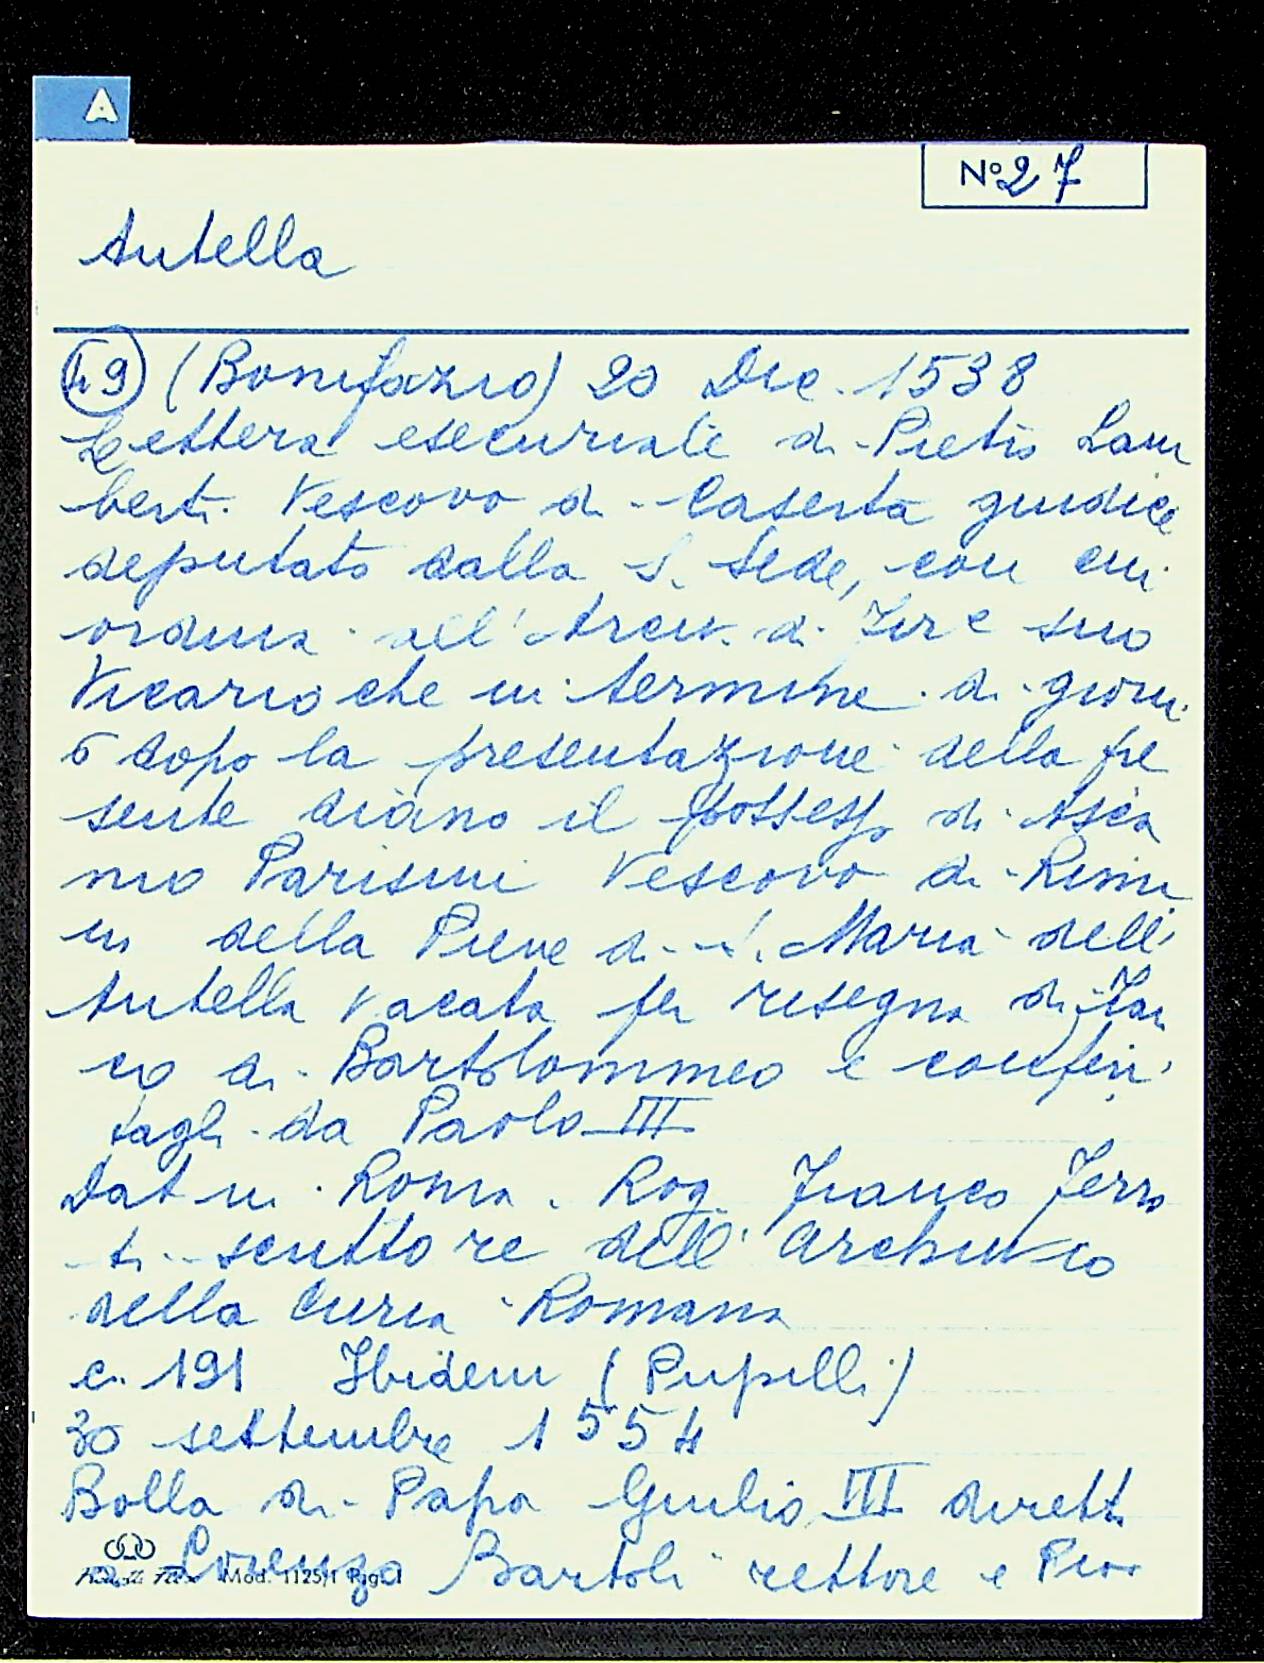 A
N° 27
Antella
49 (Bonifazio) 20 Dic. 1538
Lettera esecuriale di Pietro Lam
berti Vescovo di Caserta giudice
deputato dalla S. Sede, con cui
ordina all'Arciv. di Fir e suo
Vicario che in termine di giorni
6 dopo la presentazione della pre
sente diano il possesso di Asca
nio Parisini Vescovo di Rimi
ni della Pieve di S. Maria dell'
Antella vacata per resegna di
co di Bartolommeo e conferi
tagli da Paolo III
Dat in Roma. Rog Franco Ferro
ti scrittore dell'archivio
della Curia Romana
c. 191 Ibidem (Pupilli)
30 settembre 1554
Bolla di Papa Giulio III dirett
a Lorenzo Bartoli rettore e Prior
Mod. 1125/1 Rig.